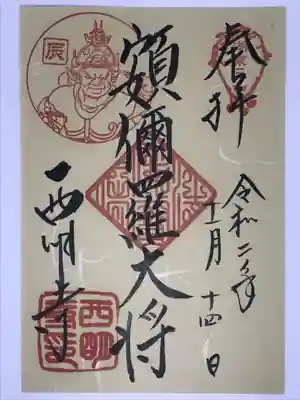 奉拝
令和二年
十一月十四日
額儞羅大将
西明寺
辰
西明寺印